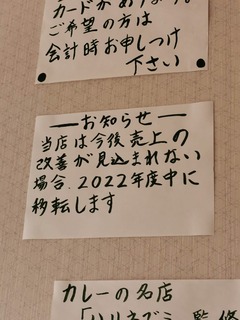 カードがあります。
ご希望の方は
会計時お申しつけ
下さい
お知らせ
当店は今後売上の
改善が見込まれない
場合、2022年度中に
移転します
カレーの名店